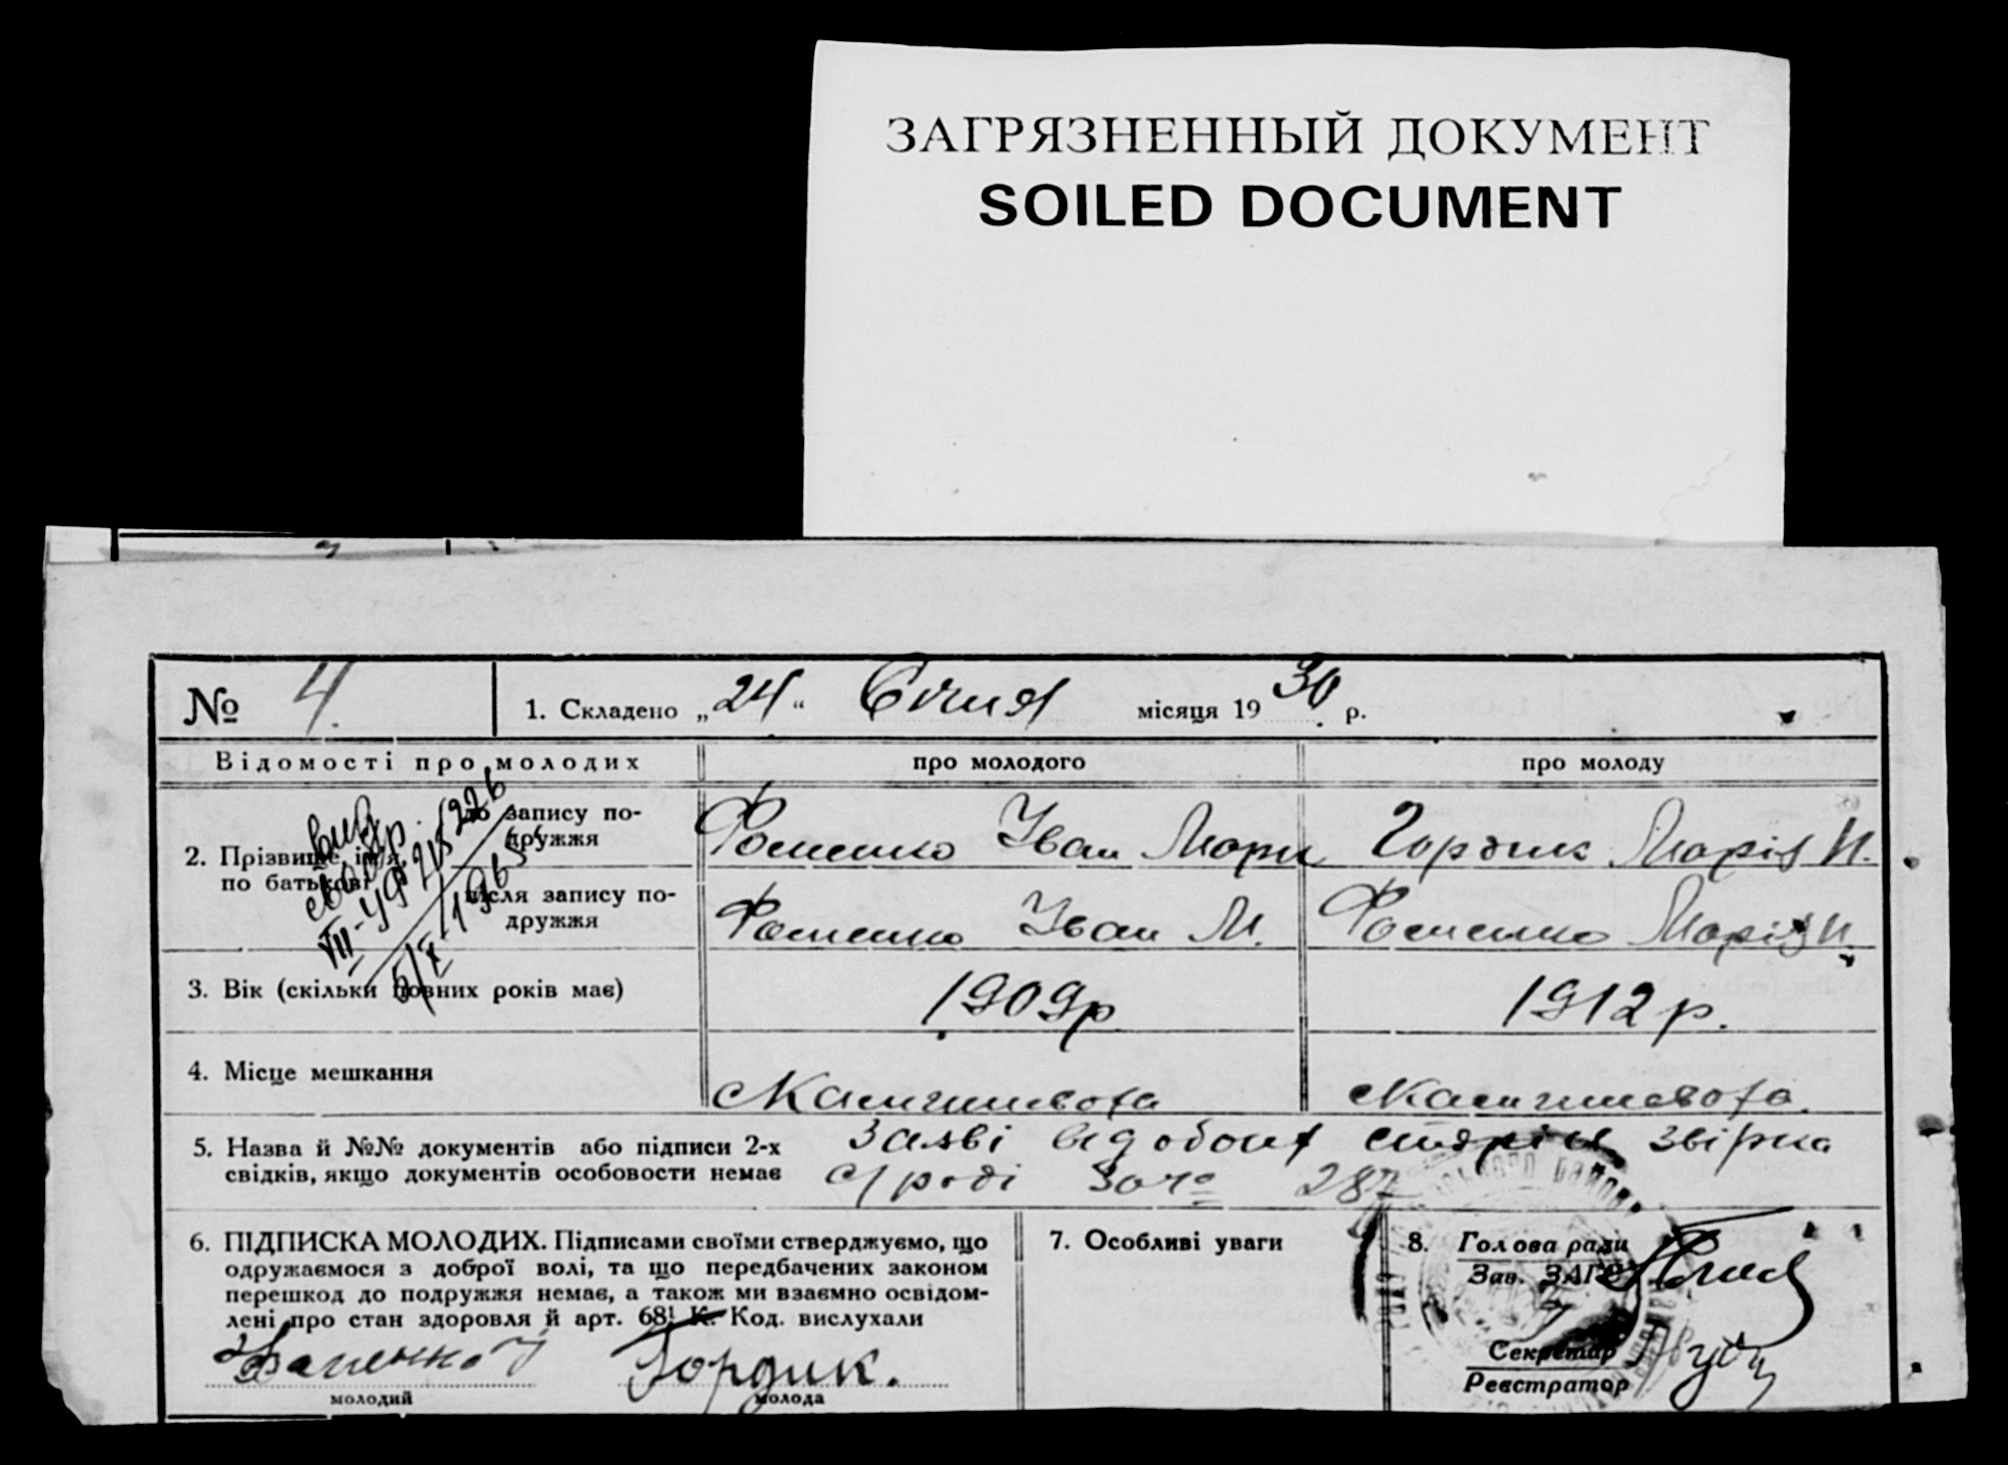 ЗАГРЯЗНЕННЫЙ ДОКУМЕНТ
SOILED DOCUMENT
№ 4. 1. Складено „24“ Січня місяця 1930 р.
Відомості про молодих про молодого про молоду
2. Прізвище, ім'я, по батькові
до запису подружжя Фоменко Іван Гордик Марія И.
після запису подружжя Фоменко Іван М. Фоменко Марія И.
VII-УР 218226
5/X-1965
3. Вік (скільки повних років має) 1909р 1912 р.
4. Місце мешкання
5. Назва й №№ документів або підписи 2-х Заяві від обоих звірка
свідків, якщо документів особовости немає 287
6. ПІДПИСКА МОЛОДИХ. Підписами своїми стверджуємо, що
одружаємося з доброї волі, та що передбачених законом
перешкод до подружжя немає, а також ми взаємно освідом-
лені про стан здоровля й арт. 68¹ К. Код. вислухали
Гордик.
молодий молода
7. Особливі уваги
8. Голова ради
Зав. ЗАГС
Секретар
Реєстратор